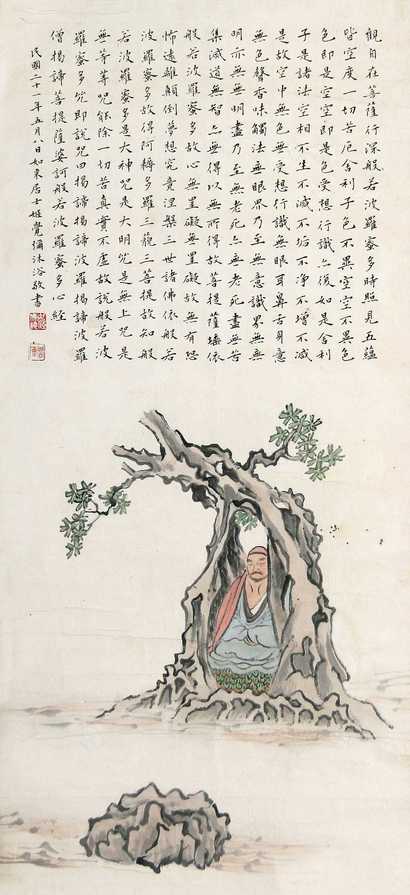 觀自在菩薩行深般若波羅蜜多時照見五蘊
皆空度一切苦厄舍利子色不異空空不異色
色即是空空即是色受想行識亦復如是舍利
子是諸法空相不生不滅不垢不淨不增不減
是故空中無色無受想行識無眼耳鼻舌身意
無色聲香味觸法無眼界乃至無意識界無無
明亦無無明盡乃至無老死亦無老死盡無苦
集滅道無智亦無得以無所得故菩提薩埵依
般若波羅蜜多故心無罣礙無罣礙故無有恐
怖遠離顛倒夢想究竟涅槃三世諸佛依般若
波羅蜜多故得阿耨多羅三藐三菩提故知般
若波羅蜜多是大神咒是大明咒是無上咒是
無等等咒能除一切苦真實不虛故說般若波
羅蜜多咒即說咒曰揭諦揭諦波羅揭諦波羅
僧揭諦菩提薩婆訶般若波羅蜜多心經
民國二十一年五月八日如來居士姬覺彌沐浴敬書